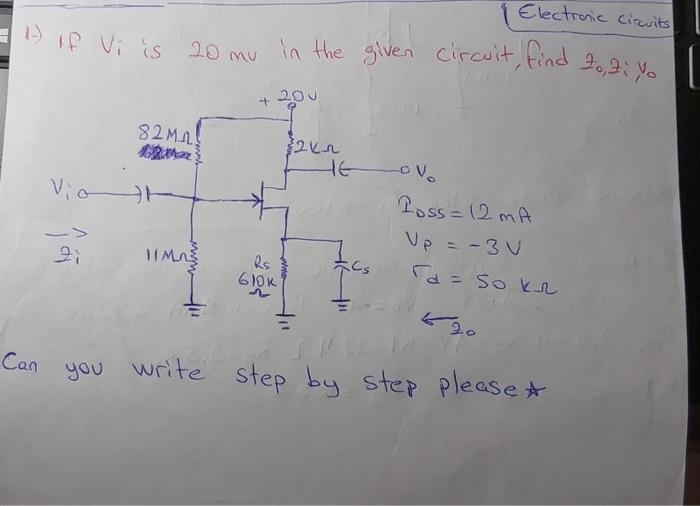 Electronic circuits
1-) If Vi is 20 mv in the given circuit, find Zo, Zi Vo
+ 20V
82MΩ
2KΩ
Vo
Vi
IDSS = 12 mA
VP = -3V
Zi
11MΩ
Rs
610K
Ω
Cs
rd = 50 KΩ
Zo
Can you write step by step please